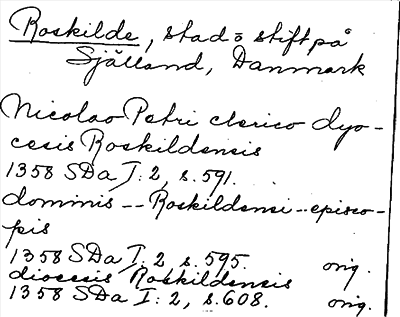 Roskilde, stad o stift på
Själland, Danmark
Nicolao Petri clerico dyo-
cesis Roskildensis
1358 SDa I: 2, s. 591.
dominis -- Roskildensi -- episco-
pis
1358 SDa I: 2 s. 595. orig.
diocesis Roskildensis
1358 SDa I: 2, s. 608. orig.